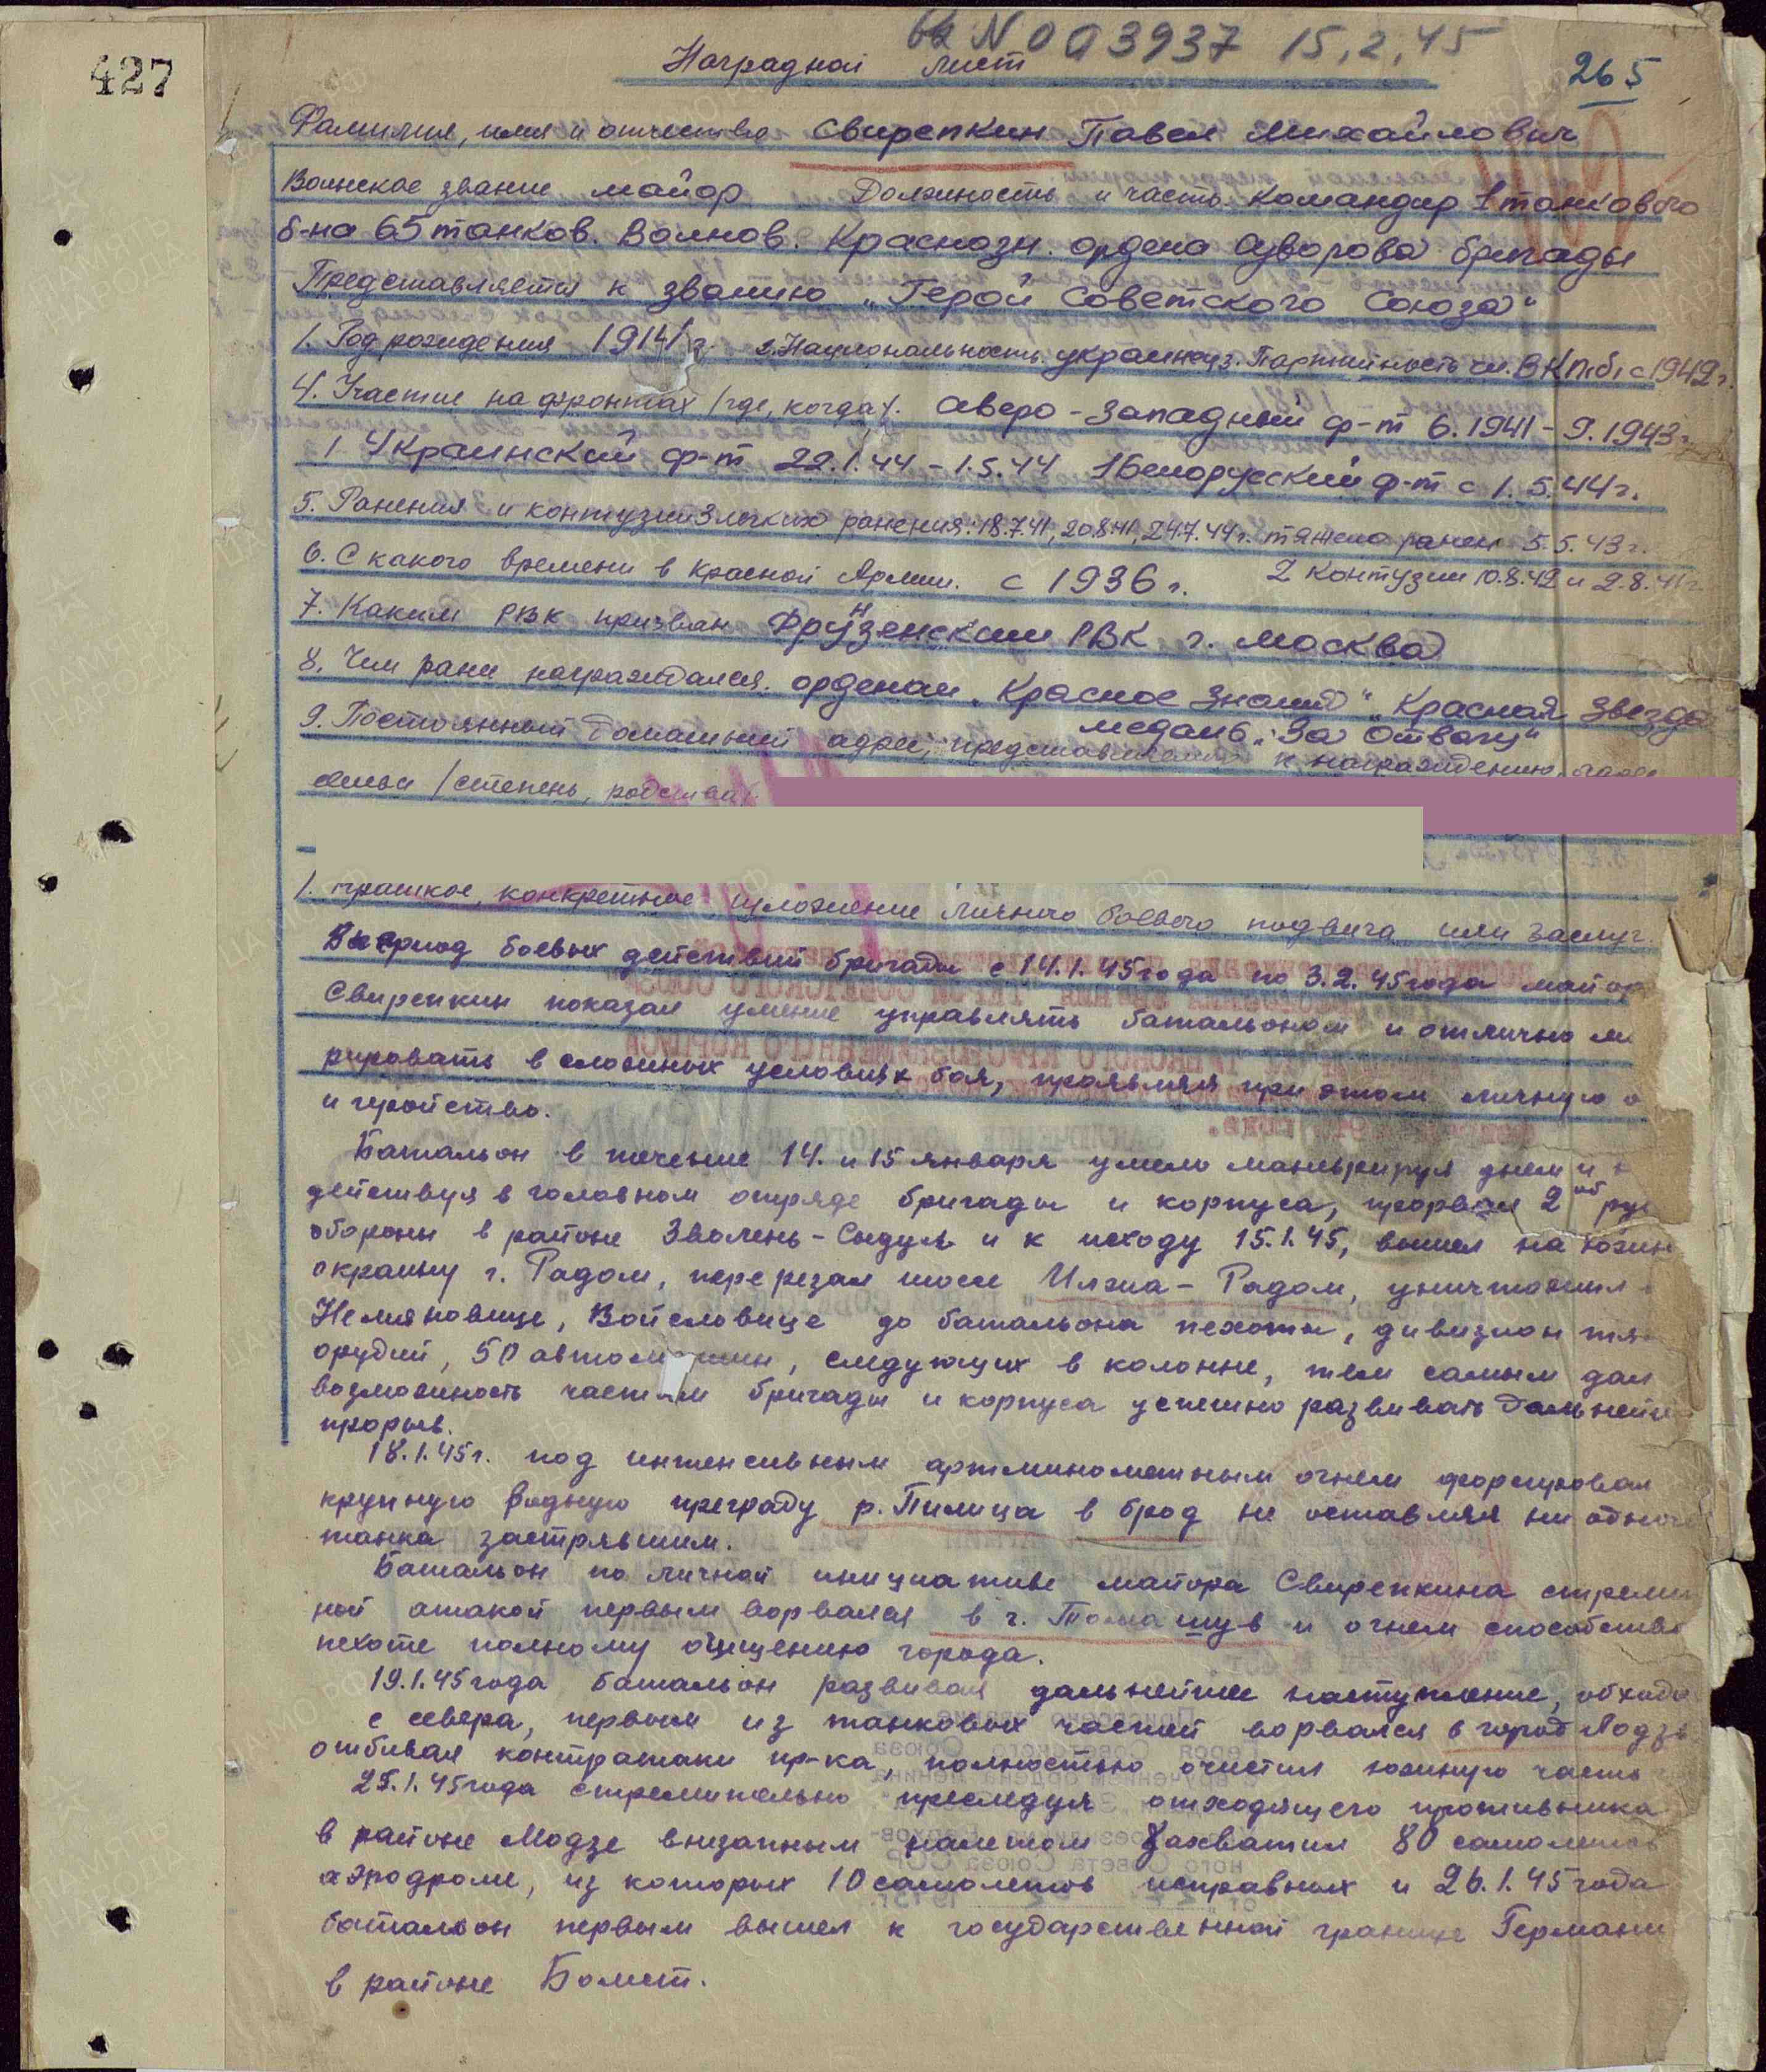 427
вх N 093937 15.2.45
Наградной лист
265
Фамилия, имя и отчество Свирепкин Павел Михайлович
Воинское звание майор Должность и часть. Командир 1 танкового
б-на 65 танков. Волнов. Краснозн. ордена Суворова бригады
Представляется к званию „Герой Советского Союза“
1. Год рождения 1914 г. 2. Национальность. украинец 3. Партийность чл. ВКП(б) с 1942 г.
4. Участие на фронтах /где, когда/. Северо-Западный ф-т 6.1941-9.1943 г.
1 Украинский ф-т 22.1.44-1.5.44 1 Белорусский ф-т с 1.5.44 г.
5. Ранения и контузии 3 легких ранения: 18.7.41, 20.8.41, 24.7.44 г. тяжело ранен 5.5.43 г.
2 контузии 10.8.42 и 2.8.41 г.
6. С какого времени в Красной Армии. с 1936 г.
7. Каким РВК призван Фрунзенским РВК г. Москва
8. Чем ранее награждался. орденами „Красное Знамя“ „Красная Звезда“
медаль „За Отвагу“
9. Постоянный домашний адрес, представляемого к награждению, адрес
семьи /степень, родства/.
1. Краткое, конкретное изложение личного боевого подвига или заслуг.
В период боевых действий бригады с 14.1.45 года по 3.2.45 года майор
Свирепкин показал умение управлять батальоном и отлично
рировать в сложных условиях боя, проявляя при этом личную
и геройство.
Батальон в течение 14. и 15 января умело маневрируя днем и
действуя в головном отряде бригады и корпуса, прорвал 2 об
обороны в районе Зволень-Сыдул и к исходу 15.1.45, вышел на южн
окраину г. Радом, перерезал шоссе Илжа-Радом, уничтожил
Немяновице, Войсловице до батальона пехоты, дивизион тя
орудий, 50 автомашин, следующих в колонне, тем самым дал
возможность частям бригады и корпуса успешно развивать дальнейш
прорыв.
18.1.45 г. под интенсивным артминометным огнем форсировал
крупную водную преграду р. Пилица в брод не оставляя ни одного
танка застрявшим.
Батальон по личной инициативе майора Свирепкина стреми
ной атакой первым ворвался в г. Томашув и огнем способство
пехоте полному очищению города.
19.1.45 года батальон развивая дальнейшее наступление, обходя
с севера, первым из танковых частей ворвался в город Лодзь
отбивая контратаки пр-ка, полностью очистил южную часть
25.1.45 года стремительно преследуя отходящего противника
в районе Модзе внезапным налетом захватил 80 самолетов
аэродроме, из которых 10 самолетов исправных и 26.1.45 года
батальон первым вышел к государственной границе Германи
в районе Бомст.